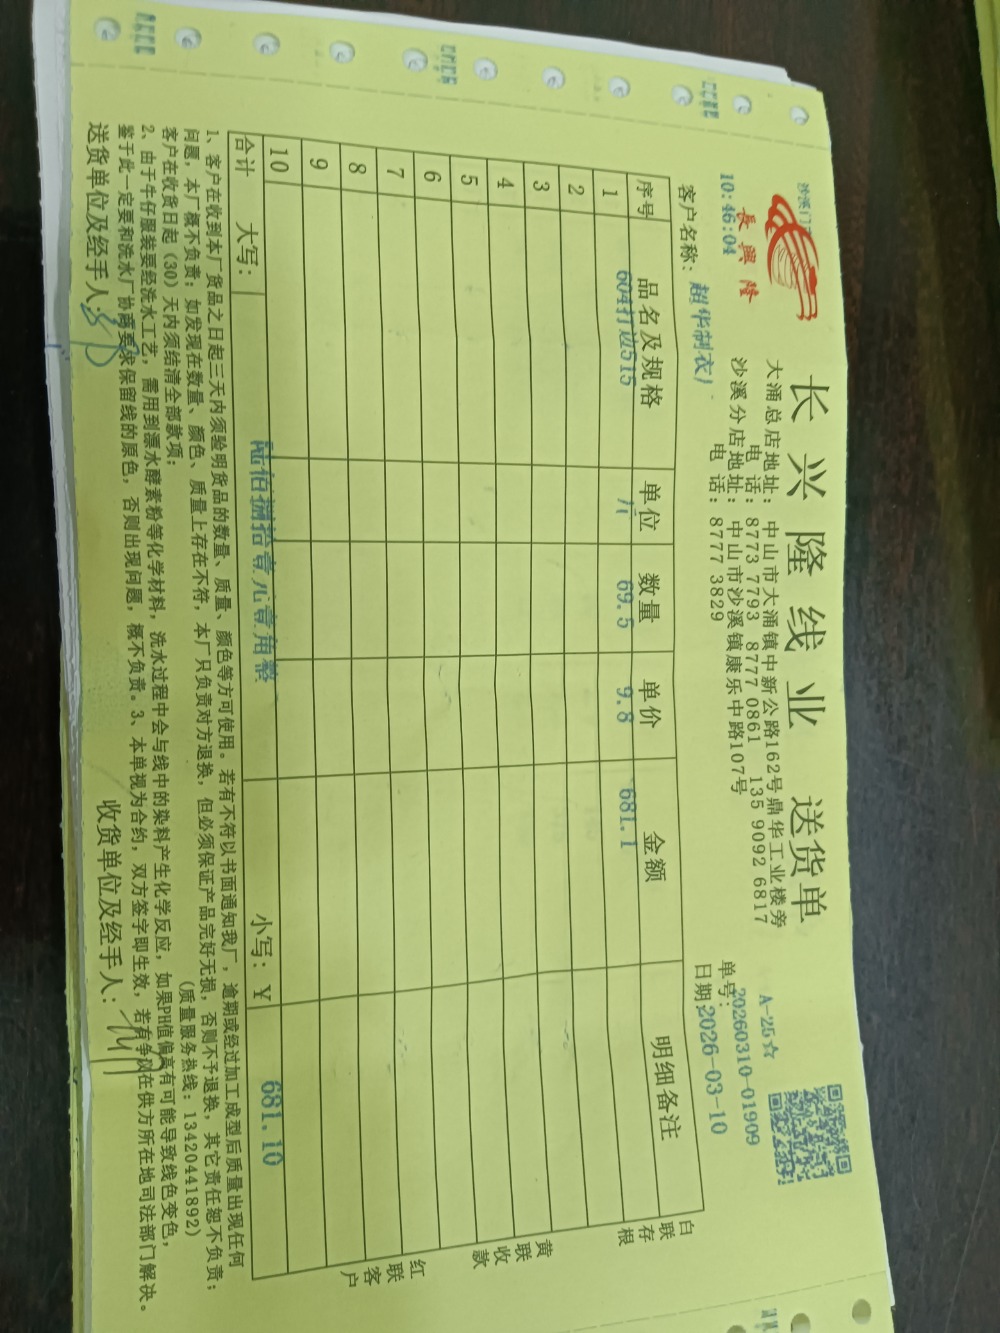 沙溪门
長興隆
10:46:04
长兴隆线业 送货单
大涌总店地址：中山市大涌镇中新公路162号鼎华工业楼旁
电 话：8773 7793 8777 0861 135 9092 6817
沙溪分店地址：中山市沙溪镇康乐中路107号
电 话：8777 3829
A-25☆
单号：20260310-01909
日期：2026-03-10
客户名称：超华制衣厂
序号 品名及规格 单位 数量 单价 金额 明细备注
1 604打边515 斤 69.5 9.8 681.1
2
3
4
5
6
7
8
9
10
合计 大写：陆佰捌拾壹元壹角整 小写：￥ 681.10
白联存根
黄联收款
红联客户
1、客户在收到本厂货品之日起三天内须验明货品的数量、质量、颜色等方可使用。若有不符以书面通知我厂，逾期或经过加工成型后质量出现任何
问题，本厂概不负责；如发现在数量、颜色、质量上存在不符，本厂只负责对方退换，但必须保证产品完好无损，否则不予退换，其它责任恕不负责；
客户在收货日起（30）天内须结清全部款项； （质量服务热线：13420441892）
2、由于牛仔服装要经洗水工艺，需用到漂水酵素粉等化学材料，洗水过程中会与线中的染料产生化学反应，如果PH值偏高有可能导致线色变色，
鉴于此一定要和洗水厂协商要求保留线的原色，否则出现问题，概不负责。3、本单视为合约，双方签字即生效，若有争议在供方所在地司法部门解决。
送货单位及经手人： 收货单位及经手人：